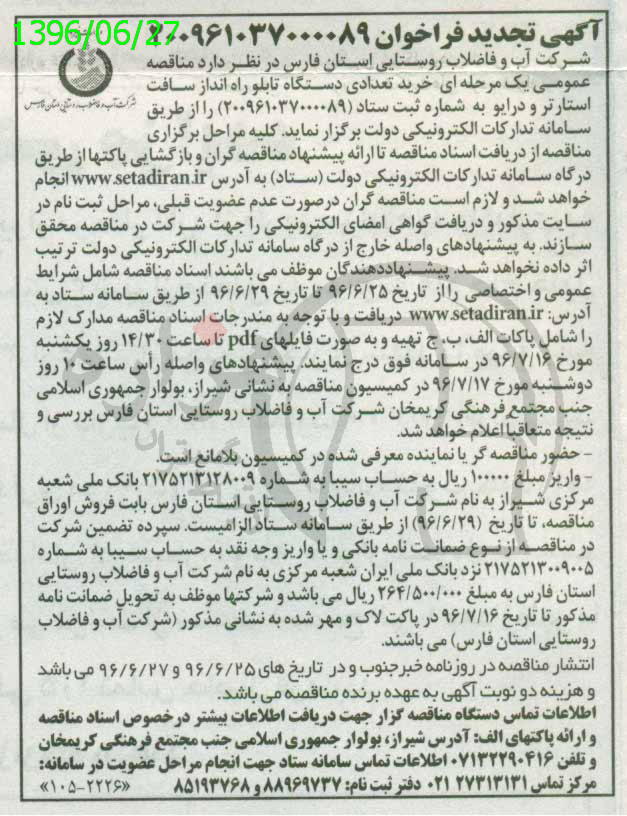 1396/06/27
آگهی تجدید فراخوان ۲۰۰۹۶۱۰۳۷۰۰۰۰۸۹
شرکت آب و فاضلاب روستایی استان فارس در نظر دارد مناقصه
عمومی یک مرحله ای خرید تعدادی دستگاه تابلو راه انداز سافت
استارتر و درایو به شماره ثبت ستاد (۲۰۰۹۶۱۰۳۷۰۰۰۰۸۹) را از طریق
سامانه تدارکات الکترونیکی دولت برگزار نماید. کلیه مراحل برگزاری
شرکت آب و فاضلاب روستایی استان فارس
مناقصه از دریافت اسناد مناقصه تا ارائه پیشنهاد مناقصه گران و بازگشایی پاکتها از طریق
درگاه سامانه تدارکات الکترونیکی دولت (ستاد) به آدرس www.setadiran.ir انجام
خواهد شد و لازم است مناقصه گران درصورت عدم عضویت قبلی، مراحل ثبت نام در
سایت مذکور و دریافت گواهی امضای الکترونیکی را جهت شرکت در مناقصه محقق
سازند. به پیشنهادهای واصله خارج از درگاه سامانه تدارکات الکترونیکی دولت ترتیب
اثر داده نخواهد شد. پیشنهاددهندگان موظف می باشند اسناد مناقصه شامل شرایط
عمومی و اختصاصی را از تاریخ ۹۶/۶/۲۵ تا تاریخ ۹۶/۶/۲۹ از طریق سامانه ستاد به
آدرس: www.setadiran.ir دریافت و با توجه به مندرجات اسناد مناقصه مدارک لازم
را شامل پاکات الف، ب، ج تهیه و به صورت فایلهای pdf تا ساعت ۱۴/۳۰ روز یکشنبه
مورخ ۹۶/۷/۱۶ در سامانه فوق درج نمایند. پیشنهادهای واصله رأس ساعت ۱۰ روز
دوشنبه مورخ ۹۶/۷/۱۷ در کمیسیون مناقصه به نشانی شیراز، بولوار جمهوری اسلامی
جنب مجتمع فرهنگی کریمخان شرکت آب و فاضلاب روستایی استان فارس بررسی و
نتیجه متعاقبا اعلام خواهد شد.
- حضور مناقصه گر یا نماینده معرفی شده در کمیسیون بلامانع است.
- واریز مبلغ ۱۰۰۰۰۰ ریال به حساب سیبا به شماره ۲۱۷۵۲۱۳۱۲۸۰۰۹ بانک ملی شعبه
مرکزی شیراز به نام شرکت آب و فاضلاب روستایی استان فارس بابت فروش اوراق
مناقصه، تا تاریخ (۹۶/۶/۲۹) از طریق سامانه ستاد الزامیست. سپرده تضمین شرکت
در مناقصه از نوع ضمانت نامه بانکی و یا واریز وجه نقد به حساب سیبا به شماره
۲۱۷۵۲۱۳۰۰۹۰۰۵ نزد بانک ملی ایران شعبه مرکزی به نام شرکت آب و فاضلاب روستایی
استان فارس به مبلغ ۲۶۴/۵۰۰/۰۰۰ ریال می باشد و شرکتها موظف به تحویل ضمانت نامه
مذکور تا تاریخ ۹۶/۷/۱۶ در پاکت لاک و مهر شده به نشانی مذکور (شرکت آب و فاضلاب
روستایی استان فارس) می باشند.
انتشار مناقصه در روزنامه خبرجنوب و در تاریخ های ۹۶/۶/۲۵ و ۹۶/۶/۲۷ می باشد
و هزینه دو نوبت آگهی به عهده برنده مناقصه می باشد.
اطلاعات تماس دستگاه مناقصه گزار جهت دریافت اطلاعات بیشتر درخصوص اسناد مناقصه
و ارائه پاکتهای الف: آدرس شیراز، بولوار جمهوری اسلامی جنب مجتمع فرهنگی کریمخان
و تلفن ۰۷۱۳۲۲۹۰۴۱۶ اطلاعات تماس سامانه ستاد جهت انجام مراحل عضویت در سامانه:
مرکز تماس ۲۷۳۱۳۱۳۱ ۰۲۱ دفتر ثبت نام: ۸۸۹۶۹۷۳۷ و ۸۵۱۹۳۷۶۸ «۱۰۵-۲۲۲۶»